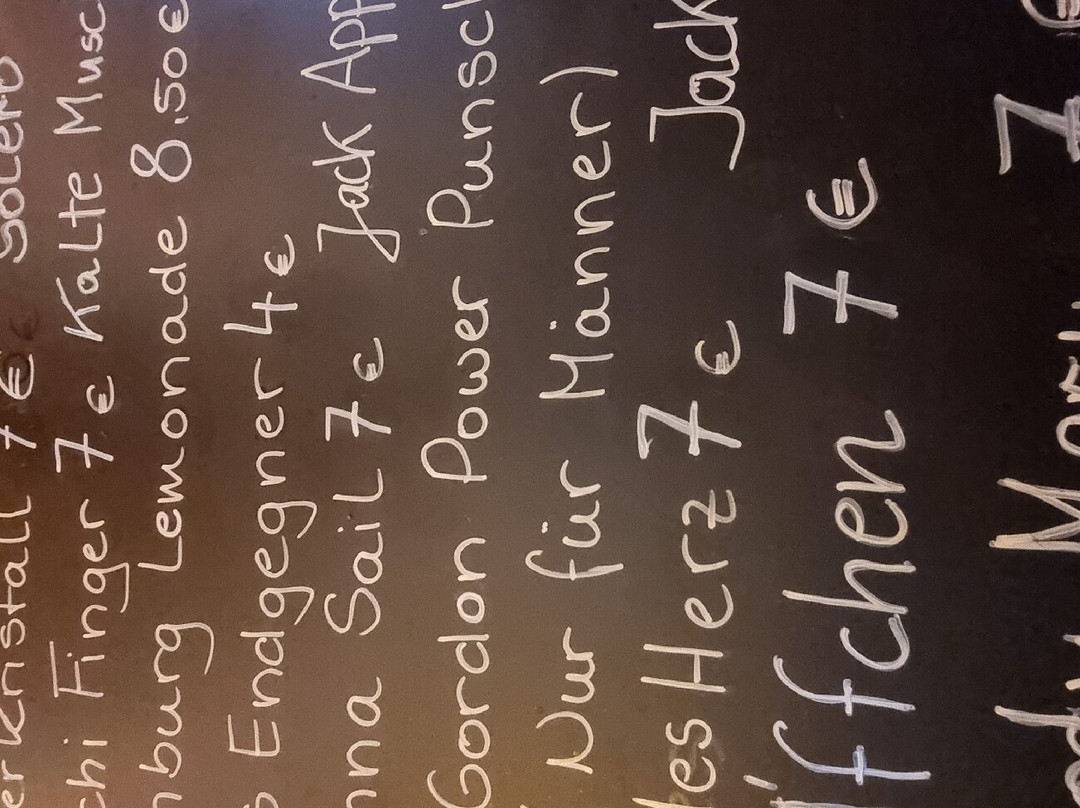 erkenstall 7€ Solero
chi Finger 7€ Kalte Musc
nburg Lemonade 8.50€
s Endgegner 4€
nna Sail 7€ Jack App
Gordon Power Punsch
Nur für Männer)
es Herz 7€ Jack
ffchen 7€
ody Mary 7€